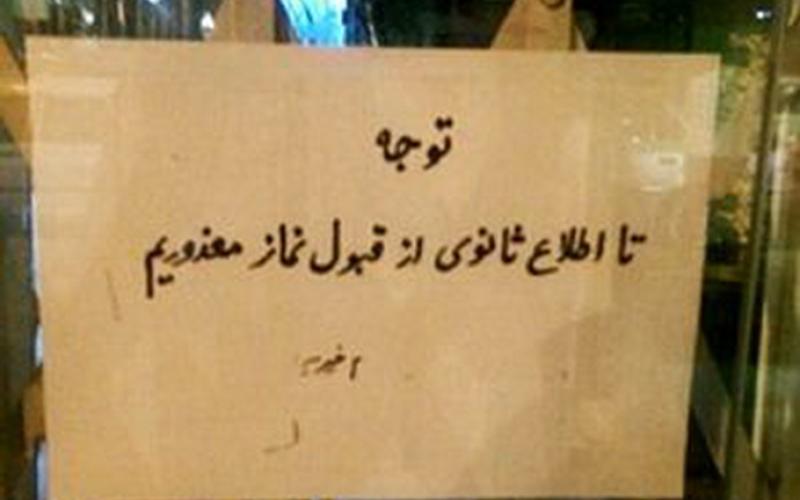 توجه
تا اطلاع ثانوی از قبول نماز معذوریم